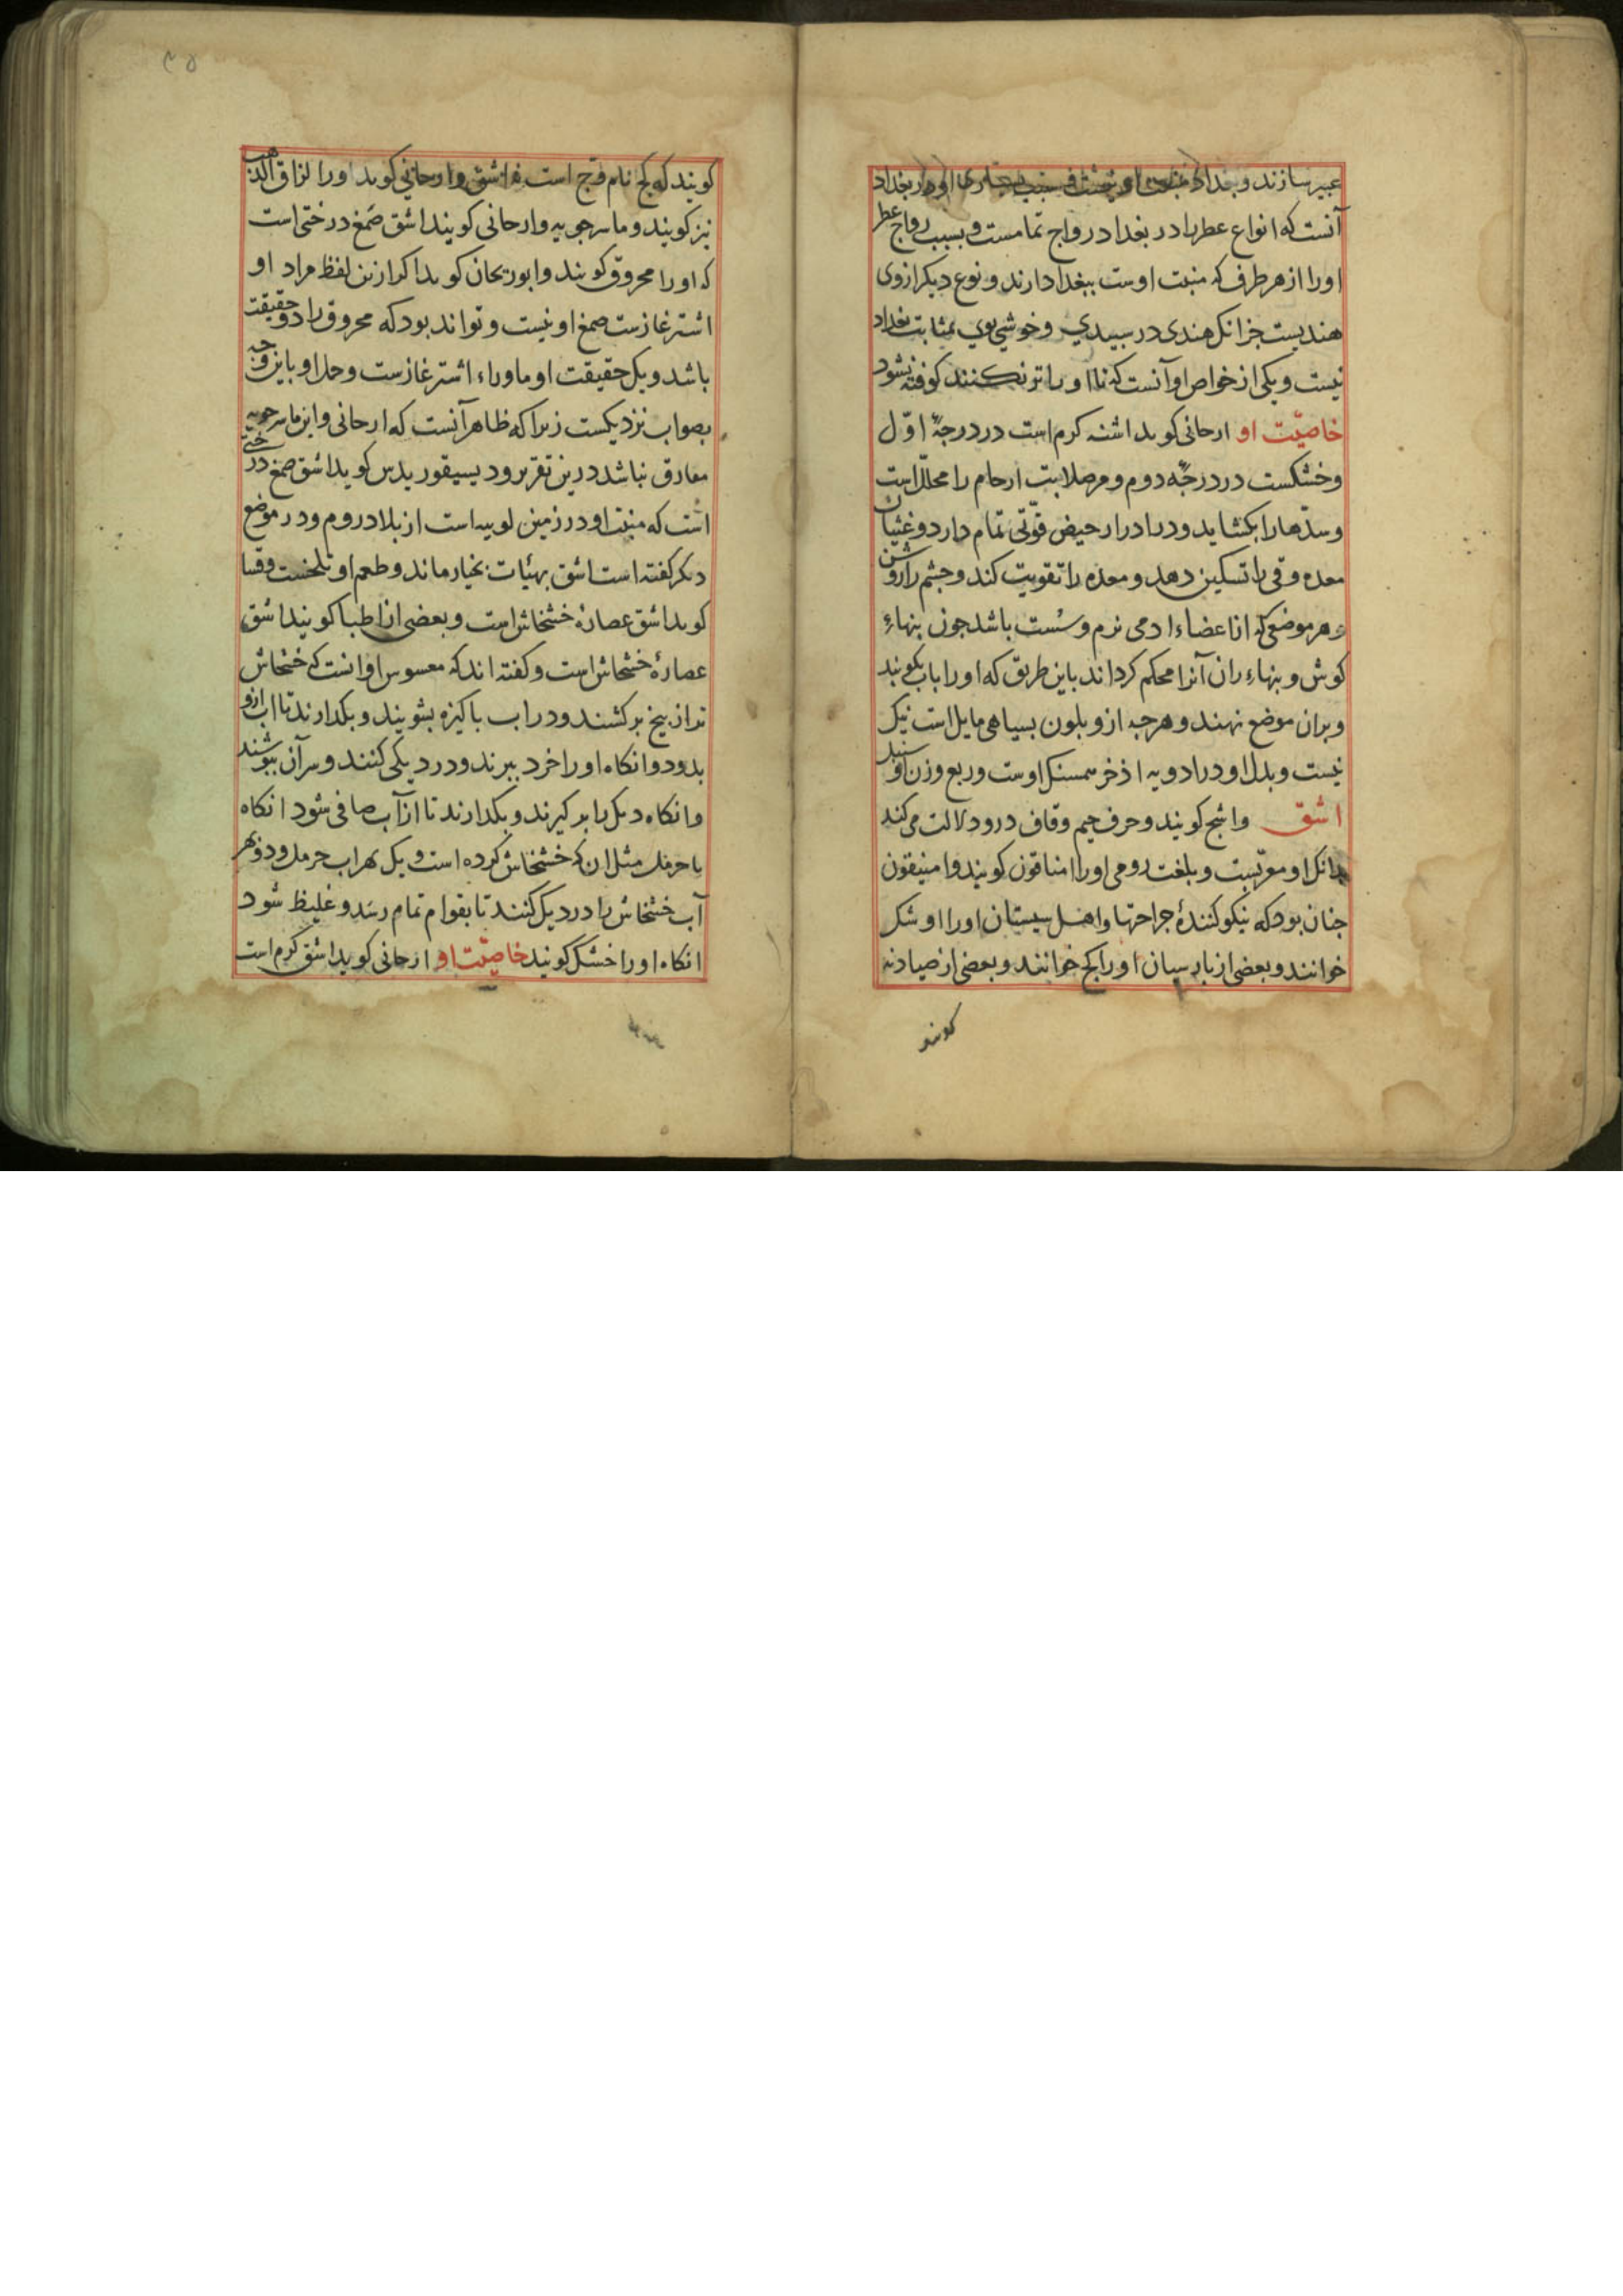 عبیر سازند و بغداد
آنست که انواع عطر را در بغداد رواج تمامست و بسبب رواج عطر
اورا از هر طرف که منبت اوست ببغداد ارند و نوع دیکر از وی
هندیست جزانک هندی در سبیدی و خوشی بوی بمثابت بغداد
نیست و یکی از خواص او آنست که تا او را تر نکنند کوفته نشود
خاصیّت او ارحانی کوید اشنه کرم است در درجهٔ اوّل
وخشکست در درجهٔ دوم و مر صلابت ارحام را محلّل است
و سدّها را بکشاید و در ادرار حیض قوّتی تمام دارد و غثیان
معده و قی را تسکین دهد و معده را تقویت کند و چشم را روشن
و هر موضعی که از اعضاء ادمی نرم و سُست باشد جون بنهاء
کوش و بنهاء ران آنرا محکم کرداند باین طریق که اورا باب بکوبند
و بران موضع نهند و هرجه ازو بلون بسیاهی مایل است نیک
نیست و بدل او در ادویه اذخر همسنک اوست و ربع وزن او سنبل
اشق واشج کویند و حرف جیم و قاف درو دلالت می کند
بدانک او معرّبست و بلغت رومی اورا امناقون کویند و امنیقون
جنان بود که نیکو کنندهٔ جراحتها و اهل سیستان اورا اوشک
خوانند و بعضی از پارسیان اورا کج خوانند و بعضی از صیادنه
کویند
کویند که کج نام قج است و اشق و ارحانی کوید اورا لزاق الذهب
نیز کویند و ماسرجویه و ارحانی کویند اشق صَمغ درختی است
که اورا محروق کویند و ابوریحان کوید اکر ازین لفظ مراد او
اشترغازست صمغ او نیست و تواند بود که محروق را دو حقیقت
باشد و یک حقیقت او ماوراء اشترغازست و حل او باین وجه
بصواب نزدیکست زیرا که ظاهر آنست که ارحانی و ابن ماسرجویه
درین تقریر و دیسیقوریدس کوید اشق صمغ درختی
است که منبت او در زمین لوبیه است از بلاد روم و در موضع
دیکر کفته است اشق بهیئات بخیار ماند و طعم او تلخست
کوید اشق عصارهٔ خشخاش است و بعضی از اطبا کویند اشق
عصارهٔ خشخاش است و کفته اند که او انست که خشخاش
تر از بیخ برکشند و در اب باکیزه بشویند و بکدارند تا اب ازو
بدود و انکاه اورا خرد ببرند و در دیکی کنند و سر آن ببوشند
و انکاه دیک را بر کیرند و بکدارند تا از آب صافی شود انکاه
با حرمل مثل ان که خشخاش کرده است و یک بهر اب حرمل و دو بهر
آب خشخاش را در دیک کنند تا بقوام تمام رسَد و غلیظ شود
انکاه اورا خشک کویند خاصیّت او ارحانی کوید اشق کرم است